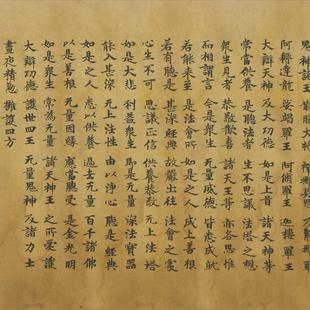 鬼神諸王
阿耨達龍 娑竭羅王 阿脩羅王 迦樓羅王
大辯天神 及大功德 如是上首 諸天神等
常當供養 是聽法者 生不思議 法塔之想
衆生見者 恭敬歡喜 諸天王等 亦各思惟
而相謂言 令是衆生 无量威德 皆悉成就
若能來至 是法會所 如是之人 成上善根
若有聽是 甚深經典 故嚴出往 法會之處
心生不可 思議正信 供養恭敬 无上法塔
如是大悲 利益衆生 即是无量 深法寶器
能入甚深 无上法性 由以淨心 聽是經典
如是之人 悉以供養 過去无量 百千諸佛
以是善根 无量因緣 應當聽受 是金光明
如是衆生 常為无量 諸天神王 之所愛護
大辯功德 護世四王 无量鬼神 及諸力士
晝夜精懃 擁護四方